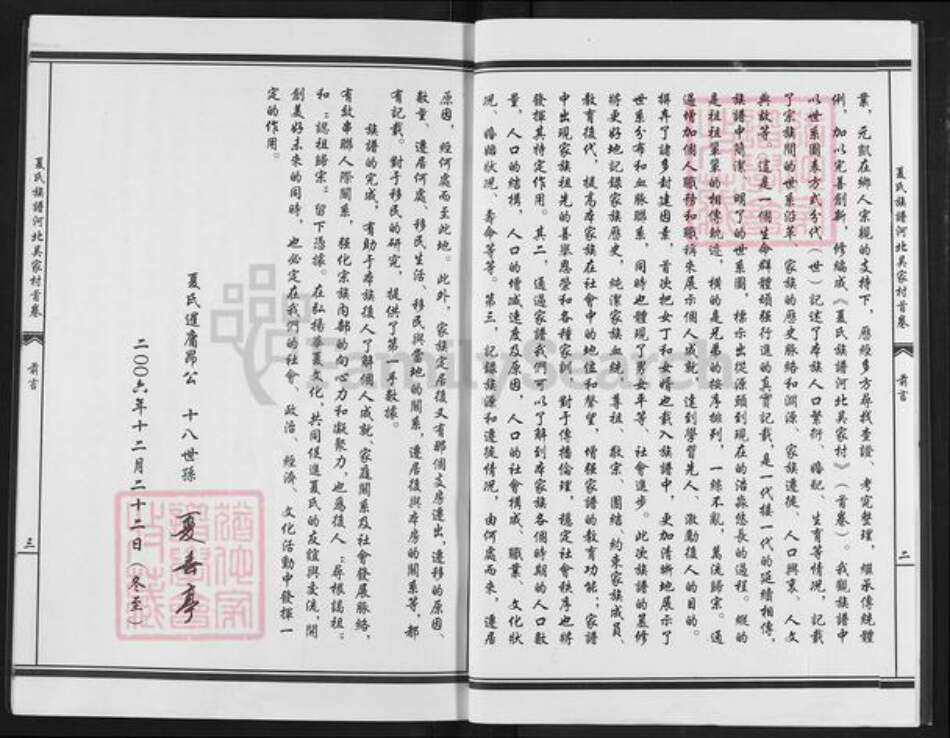 夏氏族譜河北吴家村首卷
前言
二
業、元凱在鄉人宗親的支持下，歷經多方尋找查證、考究整理，繼承傳統體
例，加以完善創新，修編成《夏氏族譜河北吴家村》（首卷）。我觀族譜中
以世系圖表方式分代（世）記述了本族人口繁衍、婚配、生育等情況，記載
了宗族間的世系沿革、家族的歷史脉絡和淵源、家族遷徙、人口興衰、人文
典故等。這是一個生命群體頑强行進的真實記載，是一代接一代的延續相傳，
族譜中簡潔、明了的世系圖，標示出從源頭到現在的浩淼悠長的過程。縱的
是祖祖輩輩的相傳軌迹，横的是兄弟的按序排列，一絲不亂，萬流歸宗。通
過增加個人職務和職稱來展示個人成就，達到學習先人、激勵後人的目的。
摒弃了諸多封建因素，首次把女丁和女婿也載入族譜中，更加清晰地展示了
世系分布和血脈聯系，同時也體現了男女平等、社會進步。此次族譜的纂修
將更好地記録家族歷史，純潔家族血統，尊祖、敬宗、團結、約束家族成員、
教育後代，提高本家族在社會中的地位和聲望，增强家譜的教育功能；家譜
中出現家族祖先的善舉恩榮和各種家訓，對于傳播倫理，穩定社會秩序也將
發揮其特定作用。其二，通過家譜我們可以了解到本家族各個時期的人口數
量，人口的結構，人口的增减速度及原因，人口的社會構成、職業、文化狀
况、婚姻狀况、壽命等等。第三，記録族源和遷徙情况，由何處而來，遷居
原因，經何處而至此地。此外，家族定居後又有那個支房遷出，遷移的原因、
數量、遷居何處、移民生活、移民與當地的關系，遷居後與本房的關系等，都
有記載。對于移民的研究，提供了第一手數據。
族譜的完成，有助于本族後人了解個人成就、家庭關系及社會發展脈絡，
有效串聯人際關系，强化宗族内部的向心力和凝聚力，也爲後人“尋根謁祖”
和“認祖歸宗”留下憑據。在弘揚華夏文化，共同促進夏氏的友誼與交流，開
創美好未來的同時，也必定在我們的社會、政治、經濟、文化活動中發揮一
定的作用。
夏氏遵庸昂公 十八世孫 夏春亭
二00六年十二月二十二日（冬至）
夏氏族譜河北吴家村首卷
前言
三
FamilySearch